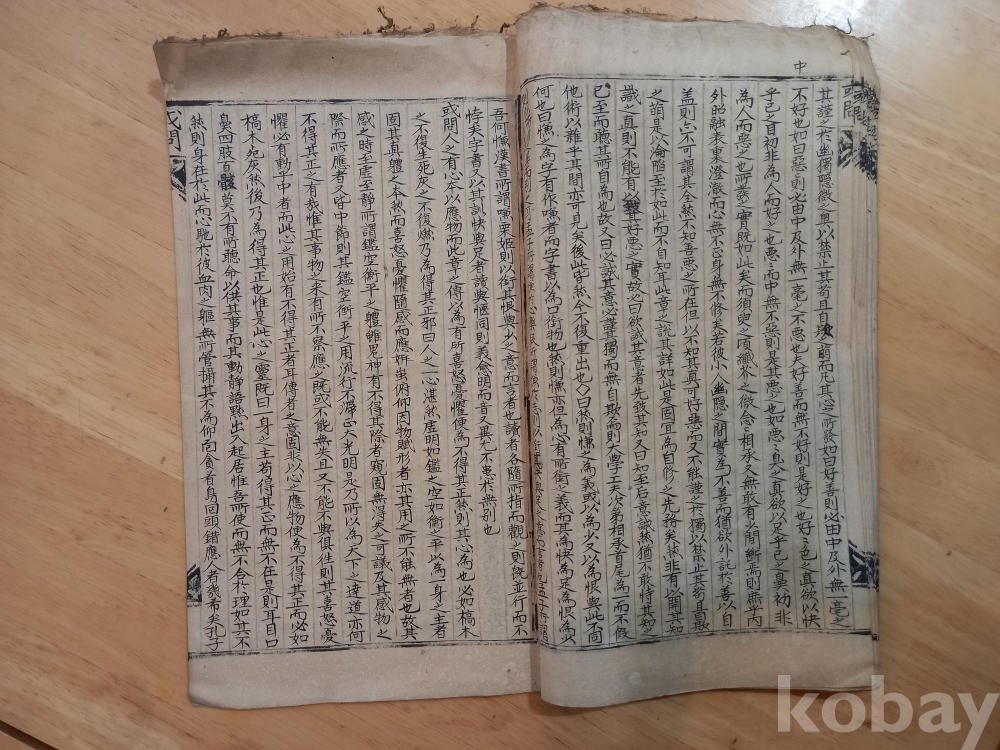 中
其謹之於幽獨隱微之奧以禁止其苟且自欺之萌而凡其心之所發如曰好善則必由中及外無一毫之
不好也如曰惡〻則必由中及外無一毫之不惡也夫好善而無不好則是好之也好〻色之真欲以快
乎己之目初非為人而好之也惡〻而中無不惡則是其惡之也如惡〻臭之真欲以足乎己之鼻初非
為人而惡之也所發之實既如此矣而須臾之頃纖芥之微念〻相承又無敢有少間斷焉則庶乎內
外昭融表裏澄澈而心無不正身無不修矣若彼小人幽隱之間實為不善而猶欲外託於善以自
蓋則亦不可謂其全然不知善惡之所在但以不知其真可好惡而又不能謹之於獨以禁止其苟且自欺
之萌是以淪陷至於如此而不自知耳此章之說其詳如此是固宜為自修之先務矣然非有以開其知
識之真則不能有以致其好惡之實故必曰欲誠其意者先致其知又曰知至后意誠然猶不敢恃其知之
已至而聽其所自為也故又曰必誠其意必謹其獨而無自欺焉則大學工夫次第相承首尾為一而不假
他術以雜乎其間亦可見矣後此皆然今不復重出也〇曰然則慊之為義或以為少又以為恨與此不同
何也曰慊之為字有作嗛者而字書以為口銜物也然則慊亦但為心有所銜之義而其為快為足為恨為少
吾何慊漢書所謂嗛栗姬則以銜其恨與少之意而言者也讀者各隨所指而觀之則既並行而不
悖矣字書又以其訓快與足者讀與愜同則義愈明而音又異尤不患於無別也
或問人之有心本以應物而此章之傳以為有所喜怒憂懼便為不得其正然則其心為也必如槁木
之不復生死灰之不復燃乃為得其正邪曰人之一心湛然虛明如鑑之空如衡之平以為一身之主者
固其真軆之本然而喜怒憂懼隨感而應妍蚩俯仰因物賦形者亦其用之所不能無者也故其未
感之時至虛至靜所謂鑑空衡平之軆雖鬼神有不得其際者窺固無得失之可議及其感物之
際而所應者又皆中節則其鑑空衡平之用流行不滯正大光明是乃所以為天下之達道亦何
不得其正之有哉惟其事物之來有所不察應之既或不能無失且又不能不與俱往則其喜怒憂
懼必有動乎中者而此心之用始有不得其正者耳傳者之意固非以心之應物便為不得其正而必如
槁木死灰然後乃為得其正也惟是此心之靈既曰一身之主苟得其正而無不在是則耳目口
鼻四肢百骸莫不有所聽命以供其事而其動靜語默出入起居惟吾所使而無不合於理如其不
然則身在於此而心馳於彼血肉之軀無所管攝其不為仰面貪看鳥回頭錯應人者幾希矣孔子
或問
或問
kobay